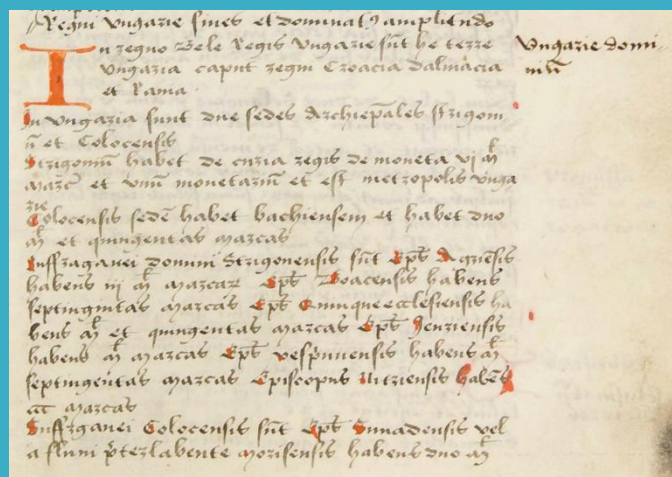 Regni Ungarie fines et dominatꝰ ampliendo
In regno Bele Regis Ungarie sūt he terre
Ungaria caput regni Croacia Dalmacia
et Rama
Ungarie domi-
niū
In Ungaria sunt due sedes Archiepāles strigoni-
n̄ et Colocensis
Strigoniū habet de curia regis de moneta vj m̄
marc̄ et unū monetariū et est metropolis Unga
rie
Colocensis sedē habet bachiensem et habet duo
m̄ et quingentas marcas
Suffraganei domini Strigonensis sūt Ep̄s Agriēsis
habens iij m̄ marcar Ep̄s Woacensis habens
septingintas marcas Ep̄s Quinqueecclesiensis ha
bens m̄ et quingentas marcas Ep̄s Jeuriensis
habens m̄ marcas Ep̄s vesprimensis habens m̄
septingentas marcas Episcopus Nitriensis habēs
cc marcas
Suffraganei Colocensis sūt Ep̄s Sunadensis vel
a fluui p̄terlabente morisensis habens duo m̄